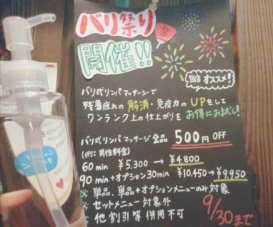 バリ祭り
開催!!
当店オススメ!
バリ式リンパマッサージで
残暑疲れの解消・免疫力のUPをして
ワンランク上の仕上がりをお得にお試し!
バリ式リンパマッサージ全品 500円OFF
60min ¥5.300→¥4800
90min+オプション30min ¥10.450→¥9,950
※単品、単品+オプションメニューのみ対象
※セットメニュー対象外
※他割引等併用不可
9/30まで